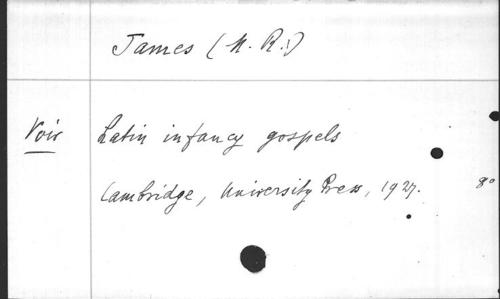 James (M. R.)
Voir Latin infancy gospels
Cambridge, University Press, 1927. 8°